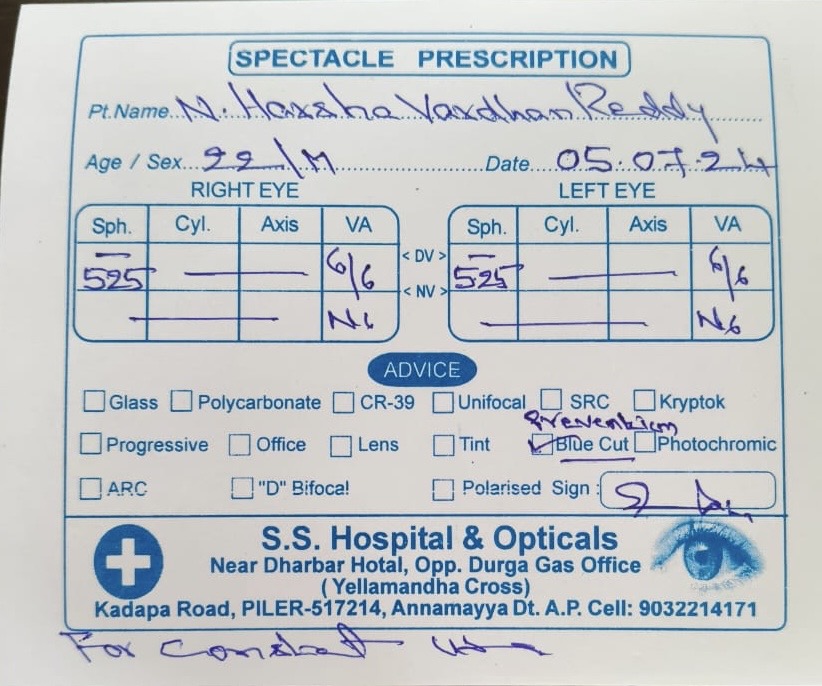 SPECTACLE PRESCRIPTION
Pt.Name N. Harsha Vardhan Reddy
Age / Sex 22/M Date 05.07.24
RIGHT EYE LEFT EYE
Sph. Cyl. Axis VA Sph. Cyl. Axis VA
- 525 — 6/6 < DV > - 525 — 6/6
— N6 < NV > — N6
ADVICE
Glass Polycarbonate CR-39 Unifocal SRC Kryptok
Prevention
Progressive Office Lens Tint ✓ Blue Cut Photochromic
ARC "D" Bifocal Polarised Sign :
S.S. Hospital & Opticals
Near Dharbar Hotal, Opp. Durga Gas Office
( Yellamandha Cross)
Kadapa Road, PILER-517214, Annamayya Dt. A.P. Cell: 9032214171
For Constant use